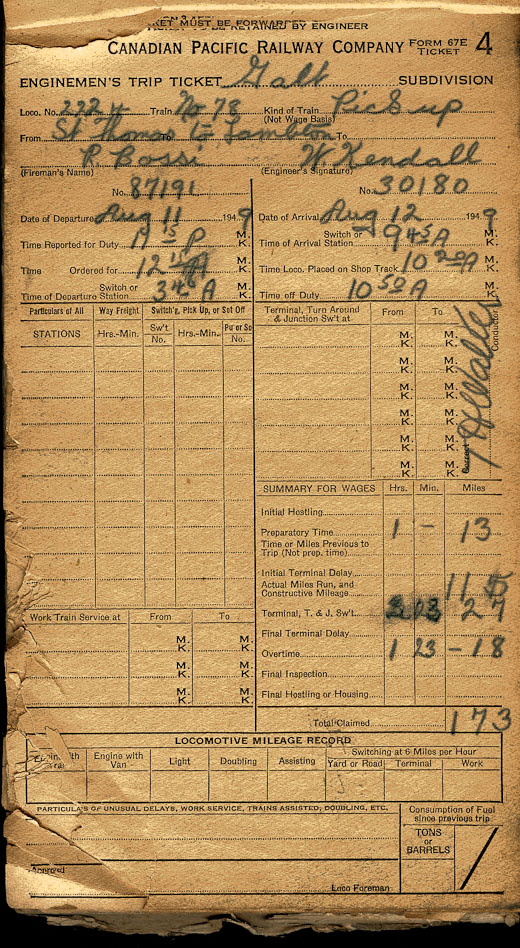 TICKET MUST BE FORWARDED
TO BE RETAINED BY ENGINEER
CANADIAN PACIFIC RAILWAY COMPANY FORM 67E TICKET 4
ENGINEMEN'S TRIP TICKET Galt SUBDIVISION
Loco. No. 2224 Train No 73 Kind of Train (Not Wage Basis) Pick up
From St Thomas To to Lambton To
P. Rossi W. Kendall
(Fireman's Name) (Engineer's Signature)
No. 87191 No. 30180
Date of Departure Aug 11 1949 Date of Arrival Aug 12 1949
Time Reported for Duty 11 15 P M. K. Switch or Time of Arrival Station 9 45 A M. K.
Time Ordered for 12 15 A M. K. Time Loco. Placed on Shop Track 10 20 A M. K.
Switch or Time of Departure Station 3 45 A M. K. Time off Duty 10 50 A M. K.
Particulars of All Way Freight Switch'g, Pick Up, or Set Off Terminal, Turn Around & Junction Sw't at From To
STATIONS Hrs.-Min. Sw't No. Hrs.-Min. Pu or So No.
M. K.
M. K.
M. K.
M. K.
M. K.
M. K.
Conductor
SUMMARY FOR WAGES Hrs. Min. Miles
Initial Hostling
Preparatory Time 1 – 13
Time or Miles Previous to Trip (Not prep. time)
Initial Terminal Delay
Actual Miles Run, and Constructive Mileage 115
Terminal, T. & J. Sw't 2 13 27
Final Terminal Delay
Overtime 1 23 – 18
Final Inspection
Final Hostling or Housing
Total Claimed 173
Work Train Service at From To
M. K. M. K.
M. K. M. K.
M. K. M. K.
LOCOMOTIVE MILEAGE RECORD
Engine with Train Engine with Van Light Doubling Assisting Switching at 6 Miles per Hour
Yard or Road Terminal Work
PARTICULARS OF UNUSUAL DELAYS, WORK SERVICE, TRAINS ASSISTED, DOUBLING, ETC. Consumption of Fuel since previous trip
TONS or BARRELS
Approved
Loco Foreman